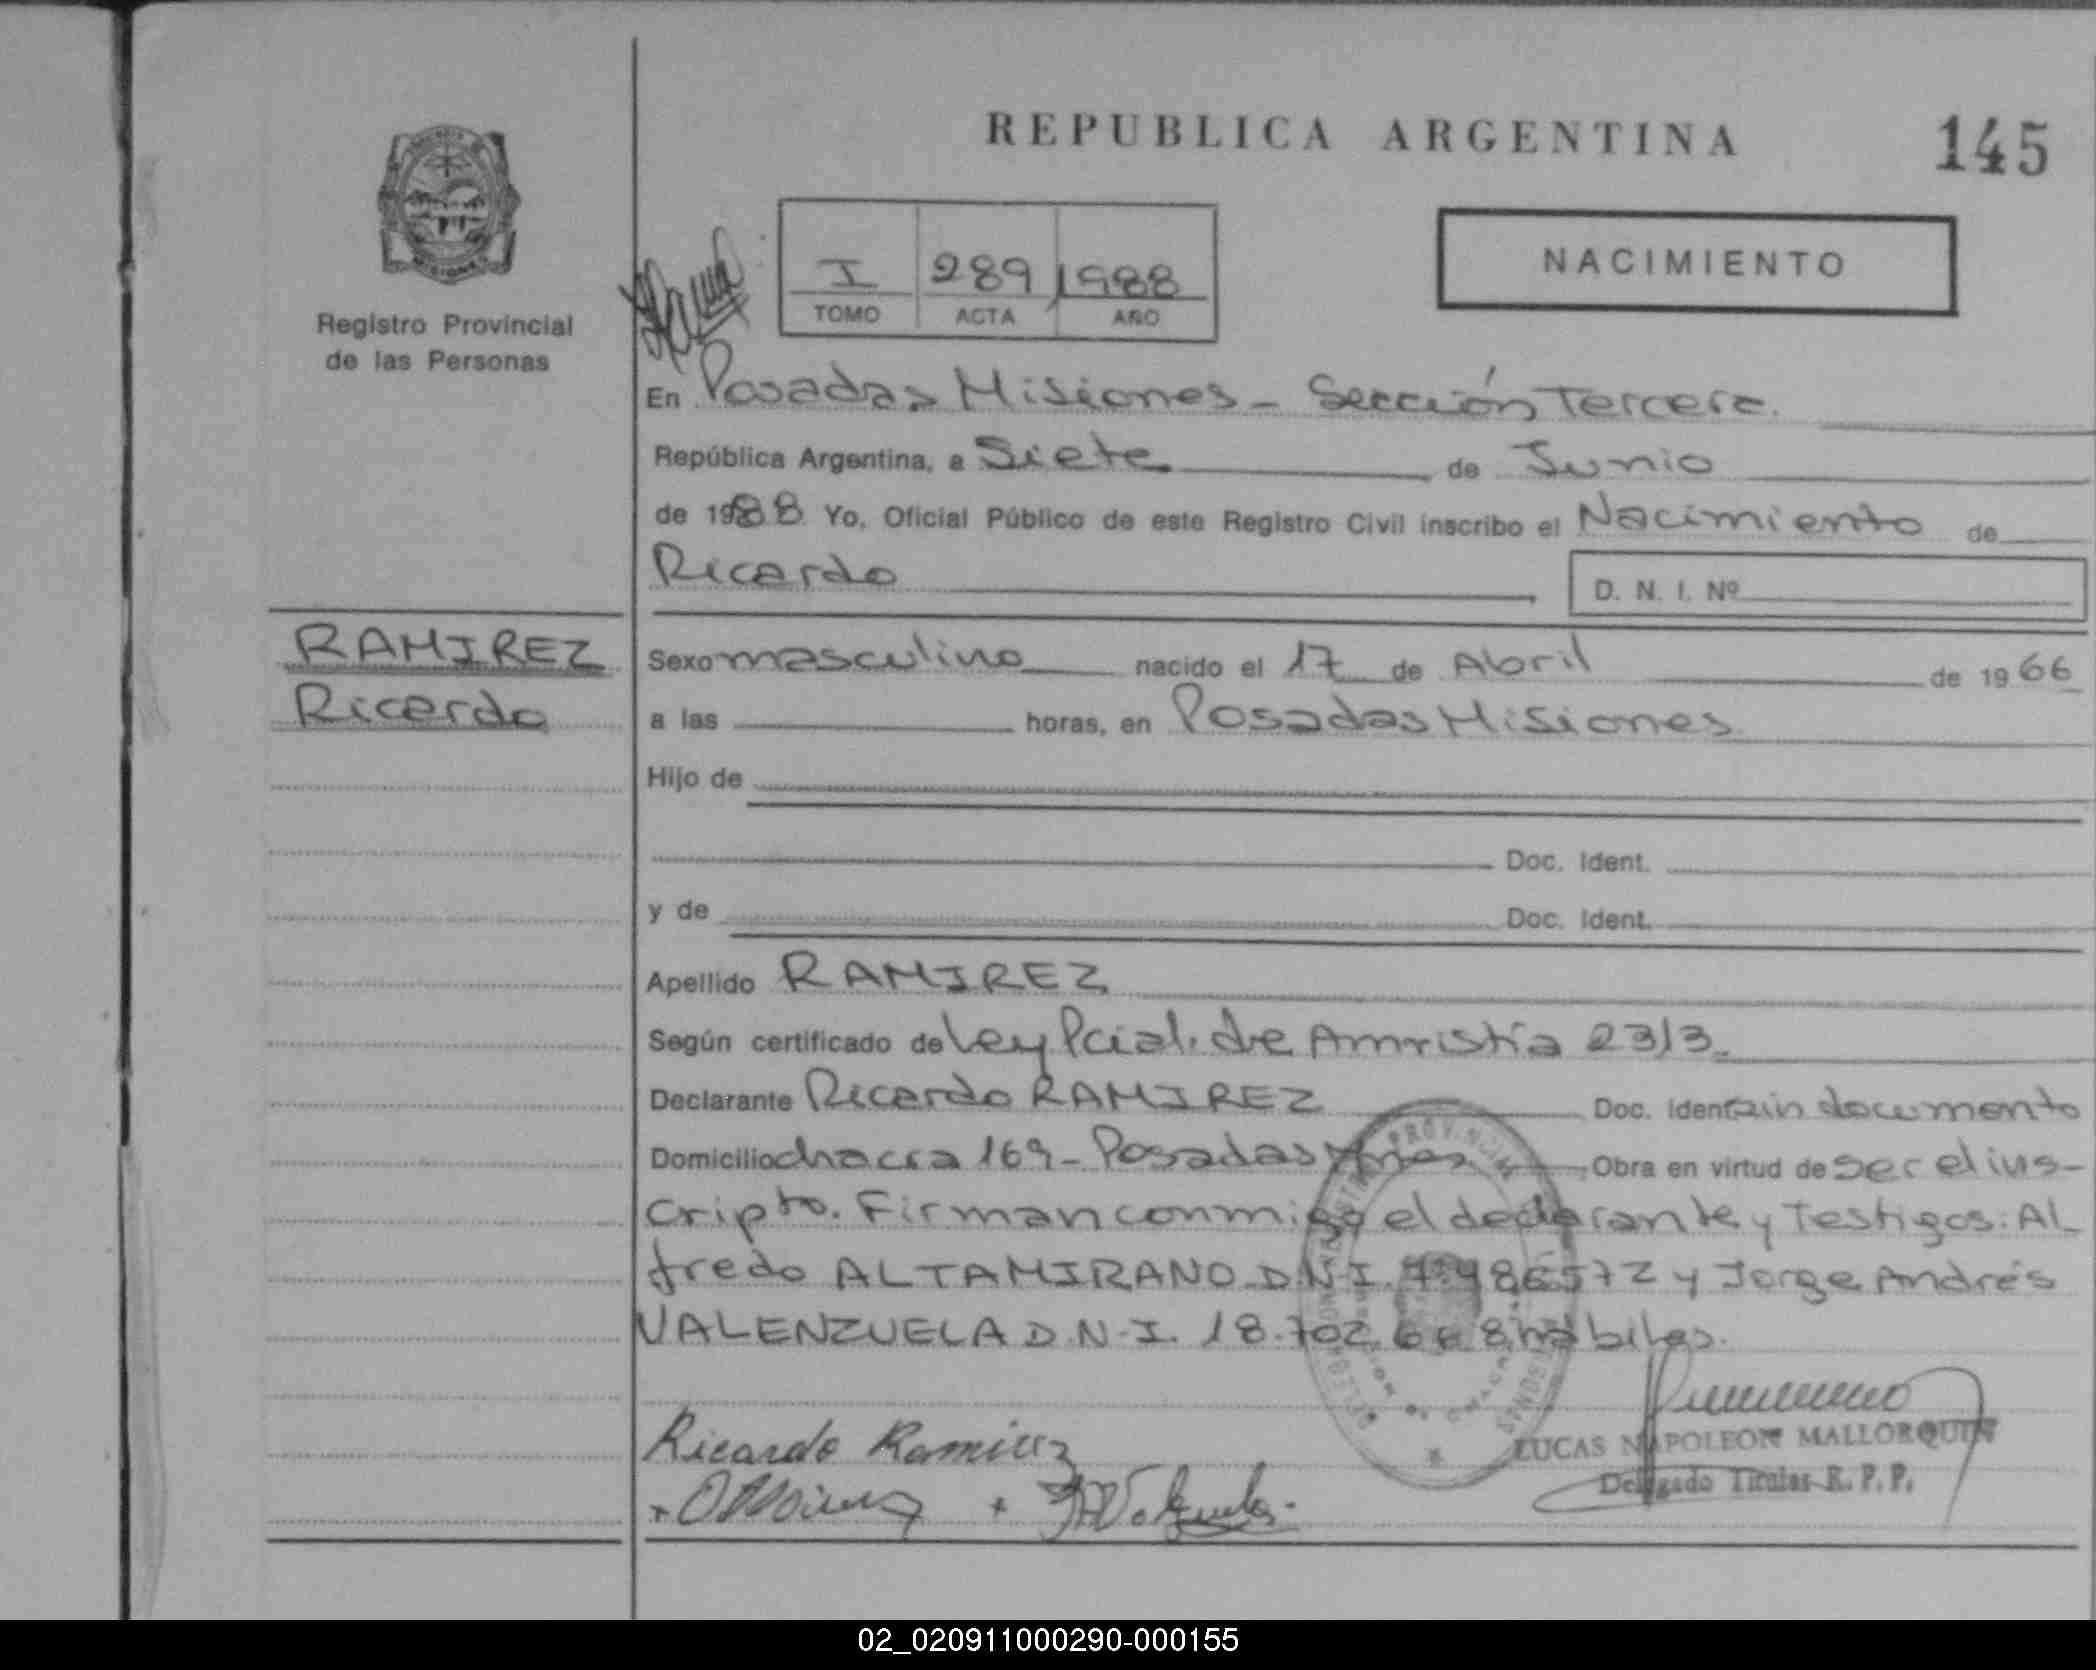 REPUBLICA ARGENTINA
145
NACIMIENTO
I 289 1988
TOMO ACTA AÑO
Registro Provincial
de las Personas
En Posadas Misiones - Sección Tercera.
República Argentina, a Siete de Junio
de 1988 Yo, Oficial Público de este Registro Civil inscribo el Nacimiento de
Ricardo
D. N. I. Nº
RAMIREZ
Ricardo
Sexo masculino nacido el 17 de Abril de 1966
a las horas, en Posadas Misiones
Hijo de
Doc. Ident.
y de Doc. Ident.
Apellido RAMIREZ
Según certificado de Ley Pcial. de Amnistía 23/3.
Declarante Ricardo RAMIREZ Doc. Ident. sin documento
Domicilio chacra 169 - Posadas Mnes Obra en virtud de ser el ins-
cripto. Firman conmigo el declarante y Testigos: Al
fredo ALTAMIRANO D.N.I. y Jorge Andrés
VALENZUELA D.N.I. 18.702. hábiles.
Ricardo Ramirez
LUCAS NAPOLEON MALLORQUIN
Delegado Titular R. P. P.
02_020911000290-000155